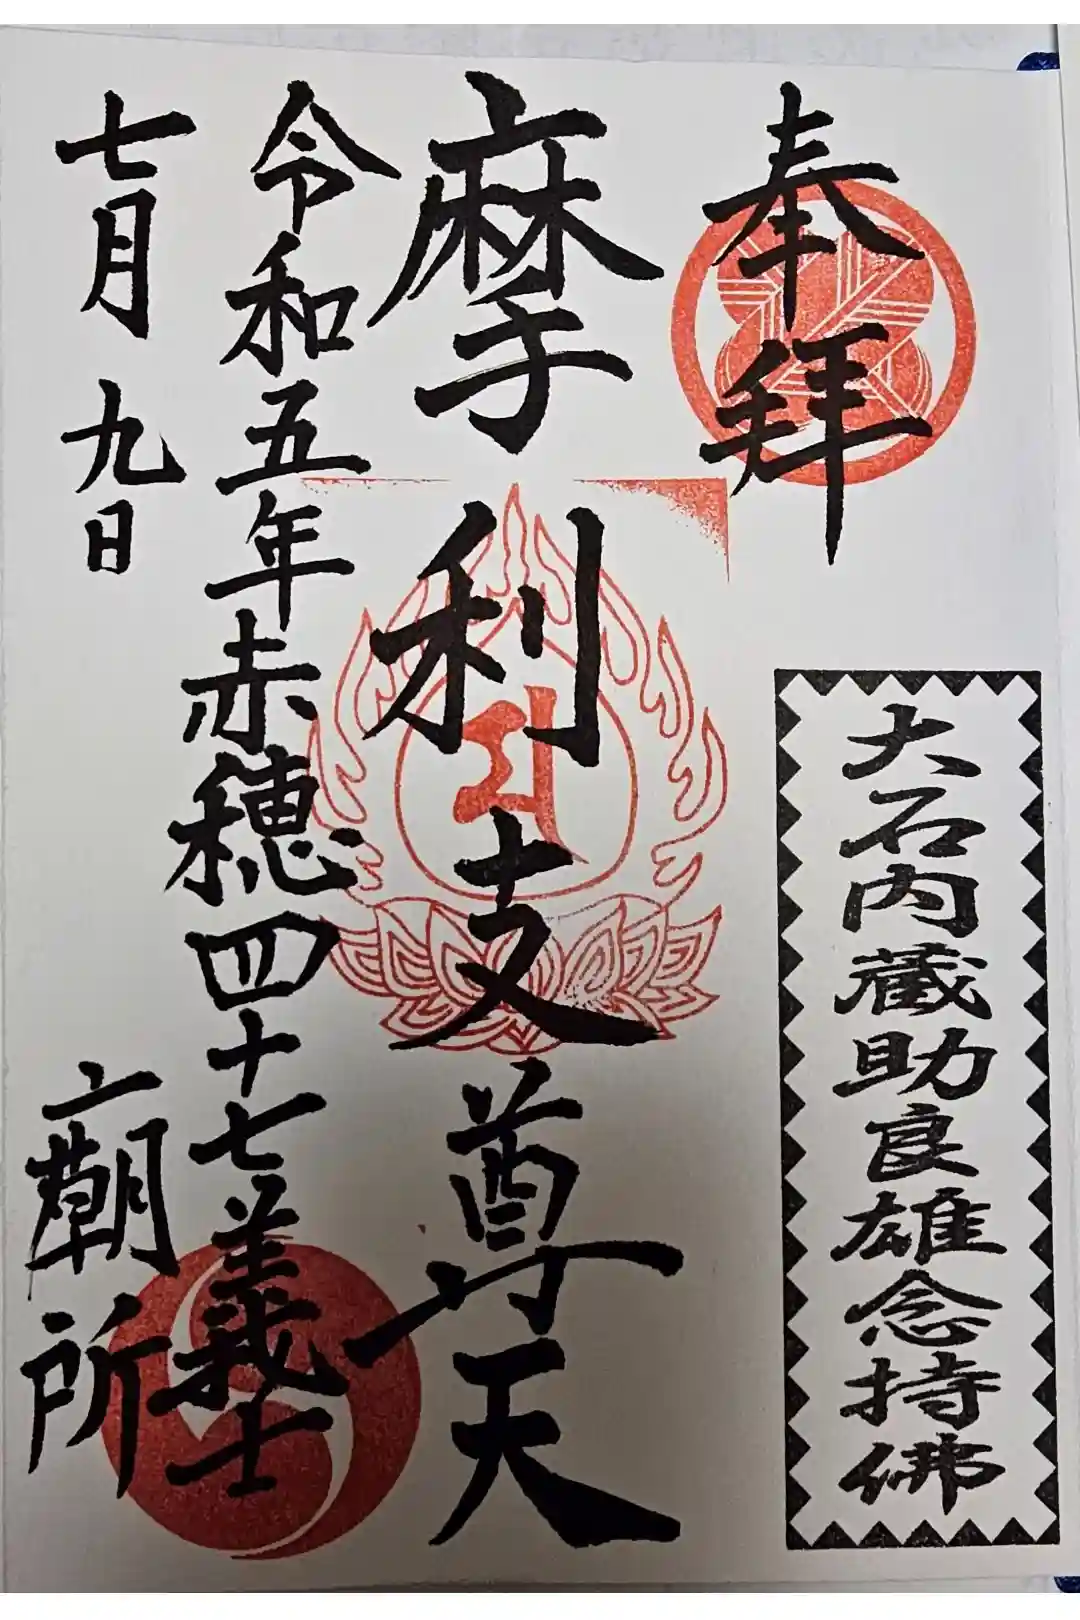 奉拝
大石内蔵助良雄念持佛
摩利支尊天
令和五年赤穂四十七義士
七月九日 廟所